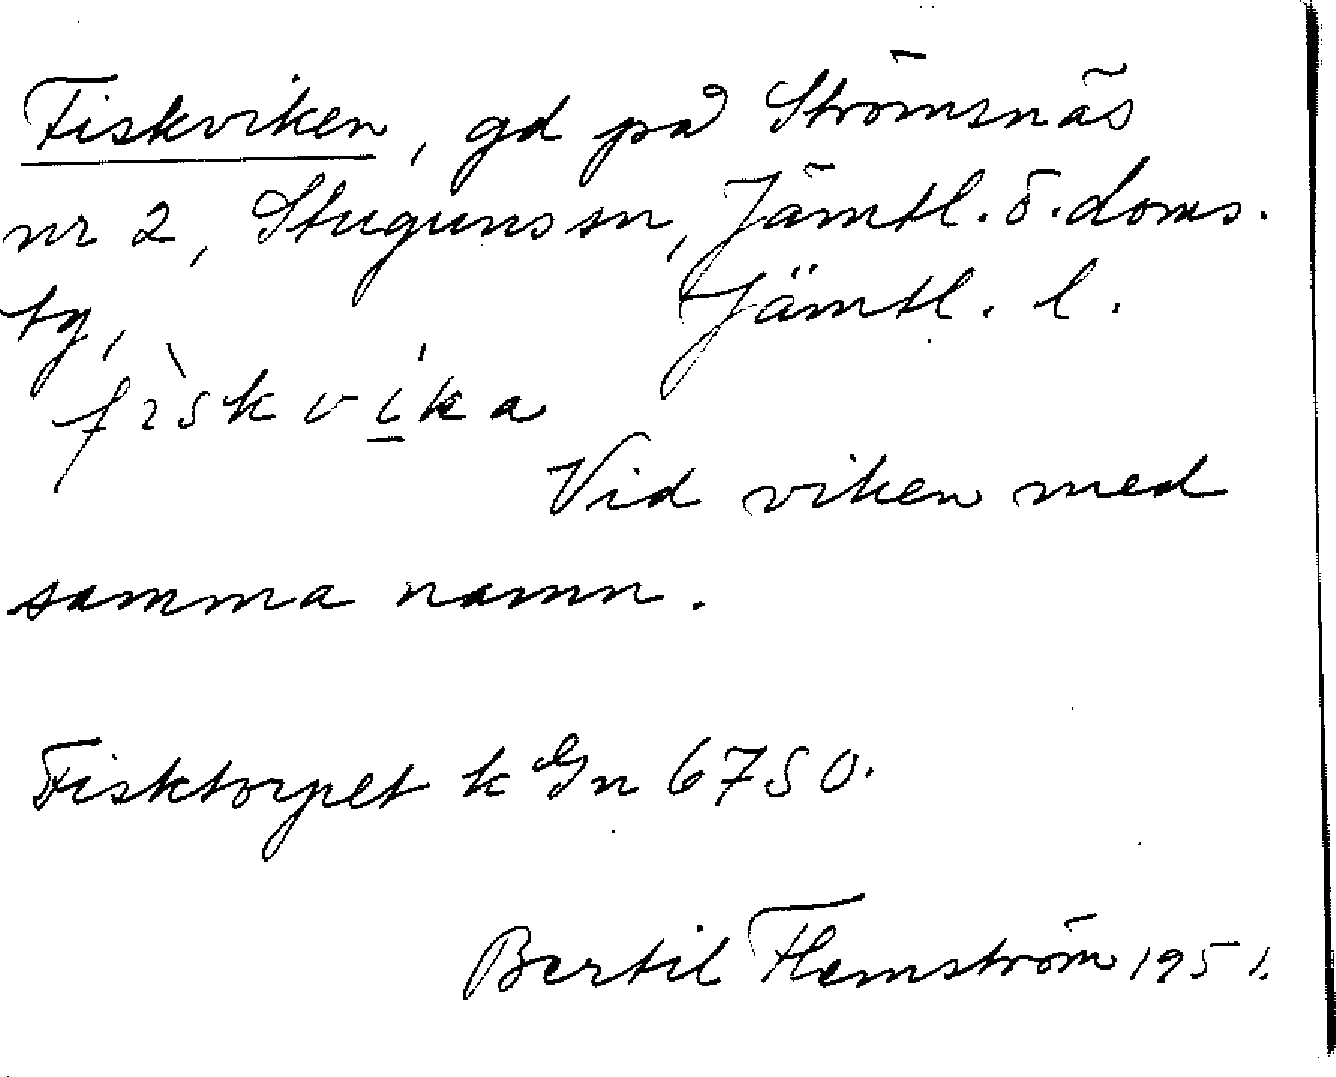 Fiskviken, gd på Strömsnäs
nr 2, Stuguns sn, Jämtl. ö. doms.
tg, Jämtl. l.
fìskvi̠ka
Vid viken med
samma namn.
Fisktorpet k Gn 6750.
Bertil Flemström 1951.